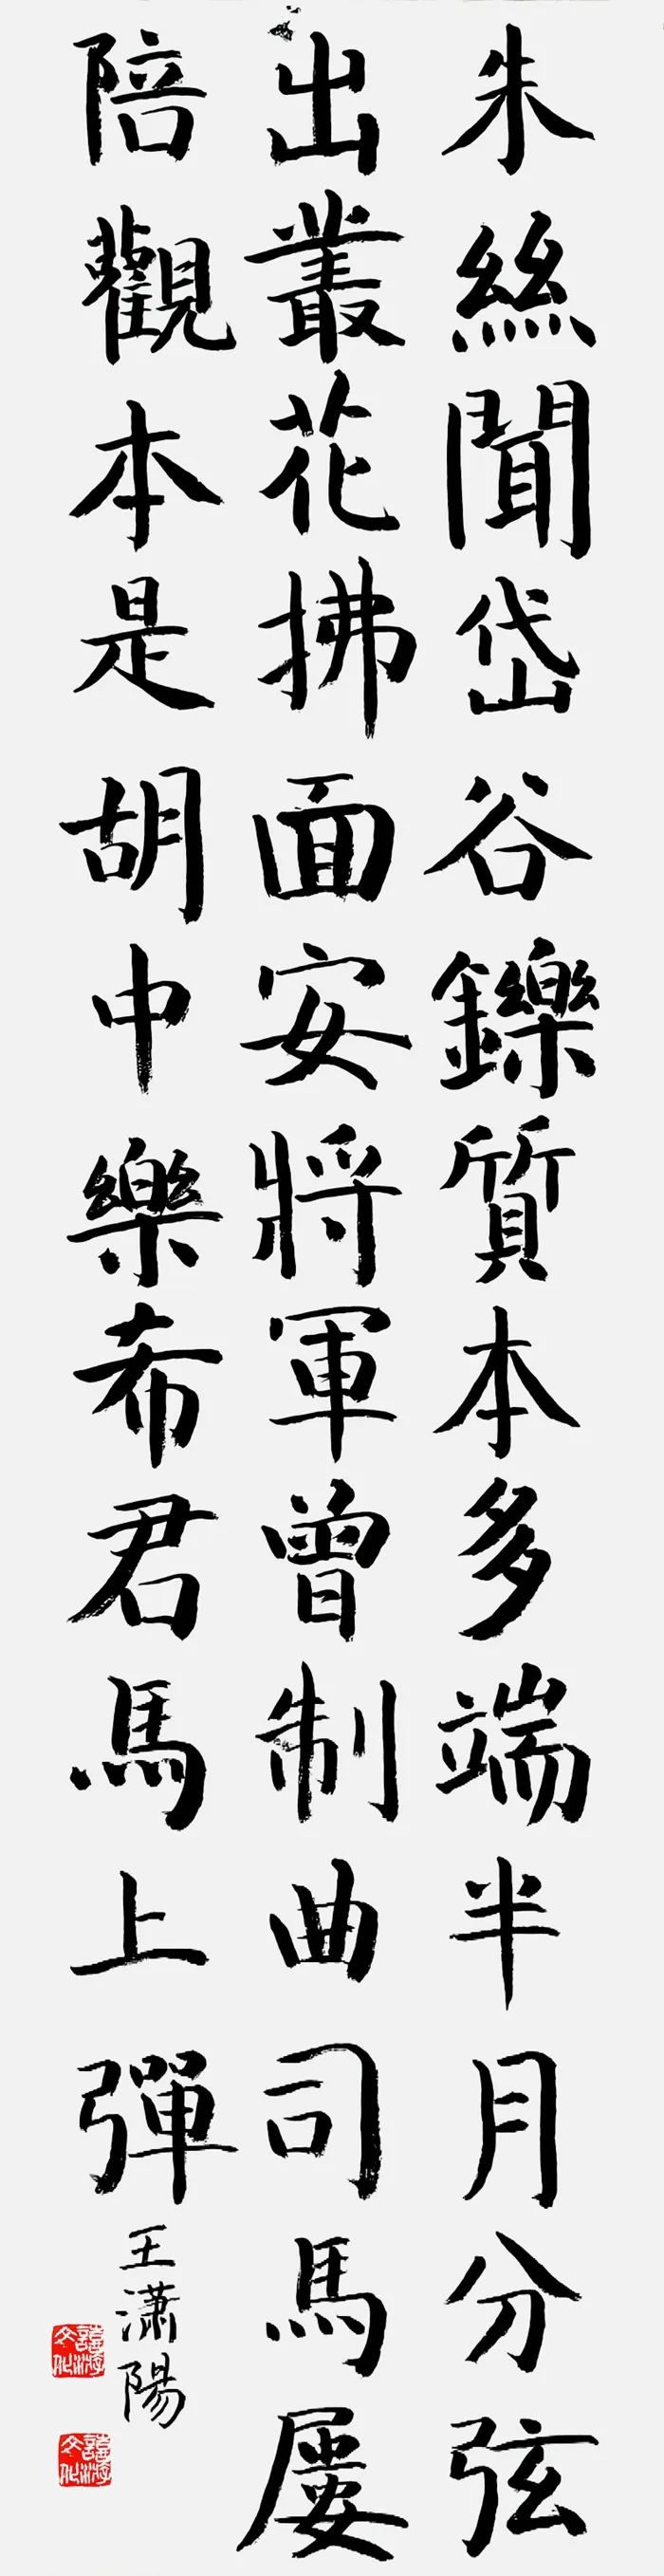 朱絲聞岱谷鑠質本多端半月分弦
出叢花拂面安將軍曾制曲司馬屢
陪觀本是胡中樂希君馬上彈
王潇陽